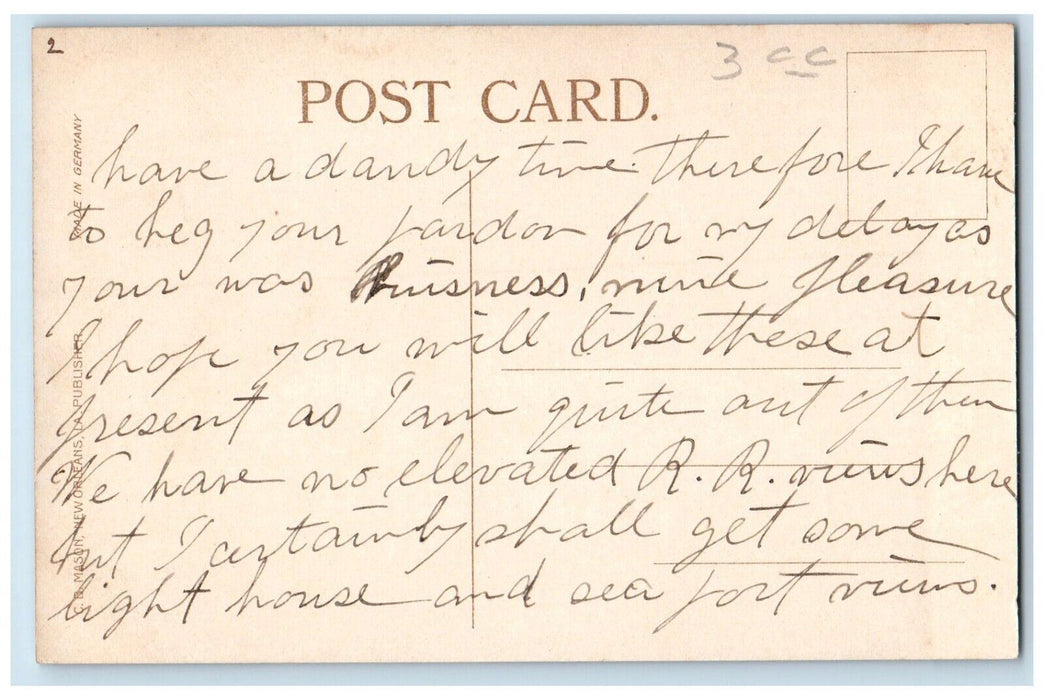 2
3 cc
POST CARD.
MADE IN GERMANY
C. B. MASON, NEW ORLEANS, LA. PUBLISHER
have a dandy time. Therefore I have
to beg your pardon for my delay as
your was buisness, mine pleasure
I hope you will like these at
present as I am quite out of them
We have no elevated R. R. views here
but I certainly shall get some
light house and sea port views.